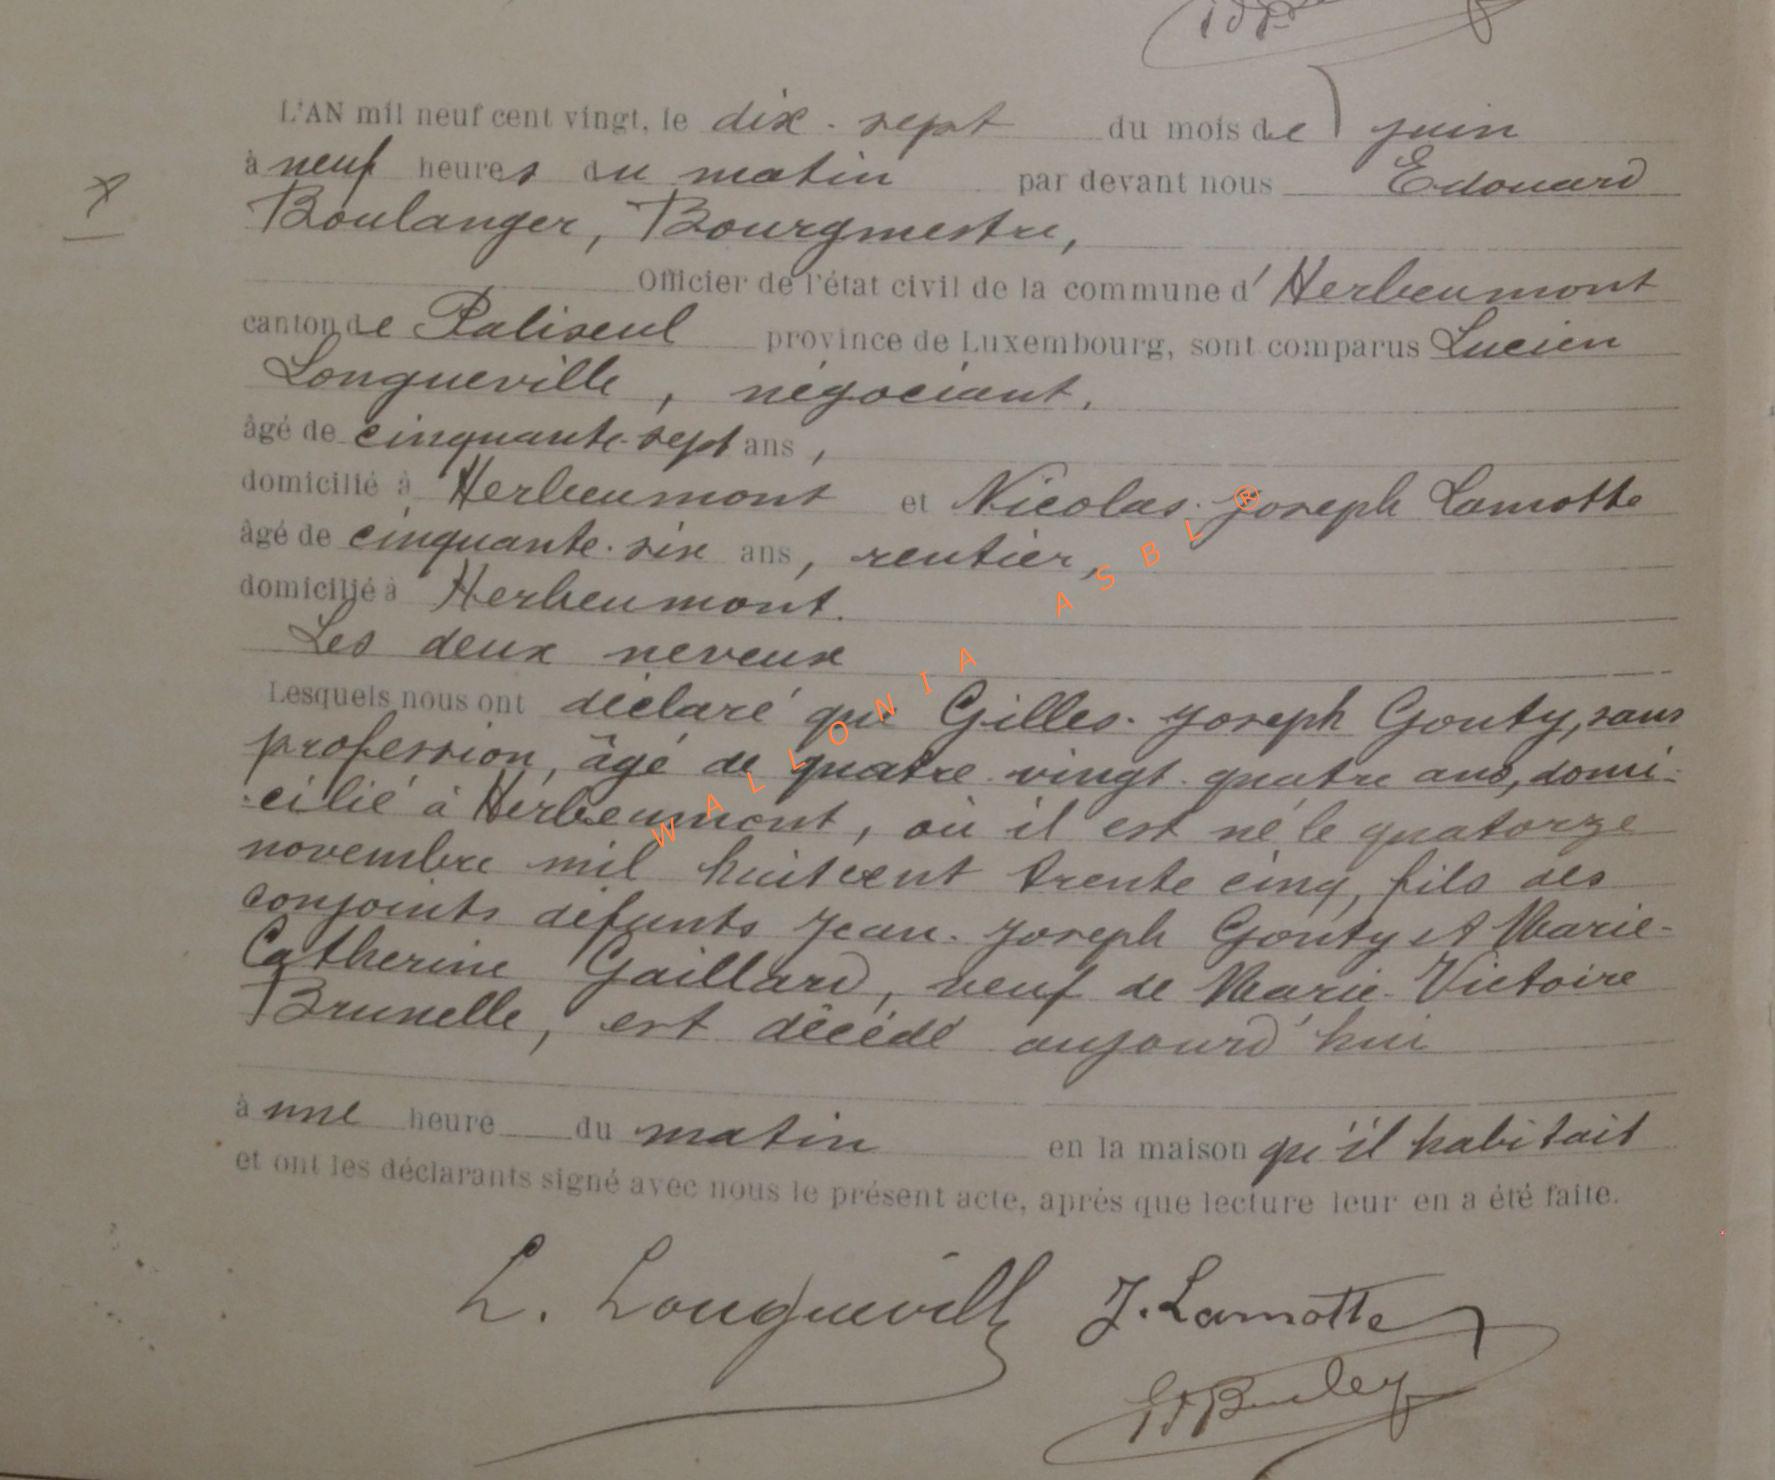 L'AN mil neuf cent vingt, le dix-sept du mois de juin
à neuf heures du matin par devant nous Edouard
Boulanger, Bourgmestre,
Officier de l'état civil de la commune d'Herbeumont
canton de Paliseul province de Luxembourg, sont comparus Lucien
Longueville, négociant,
âgé de cinquante-sept ans,
domicilié à Herbeumont et Nicolas-Joseph Lamotte
âgé de cinquante-six ans, rentier,
domicilié à Herbeumont.
Les deux neveux
Lesquels nous ont déclaré que Gilles-Joseph Gouty, sans
profession, âgé de quatre-vingt-quatre ans, domi-
cilié à Herbeumont, où il est né le quatorze
novembre mil huit cent trente cinq, fils des
conjoints défunts Jean-Joseph Gouty et Marie-
Catherine Gaillard, veuf de Marie-Victoire
Brunelle, est décédé aujourd'hui
à une heure du matin en la maison qu'il habitait
et ont les déclarants signé avec nous le présent acte, après que lecture leur en a été faite.
L. Longueville J. Lamotte
WALLONIA ASBL ®